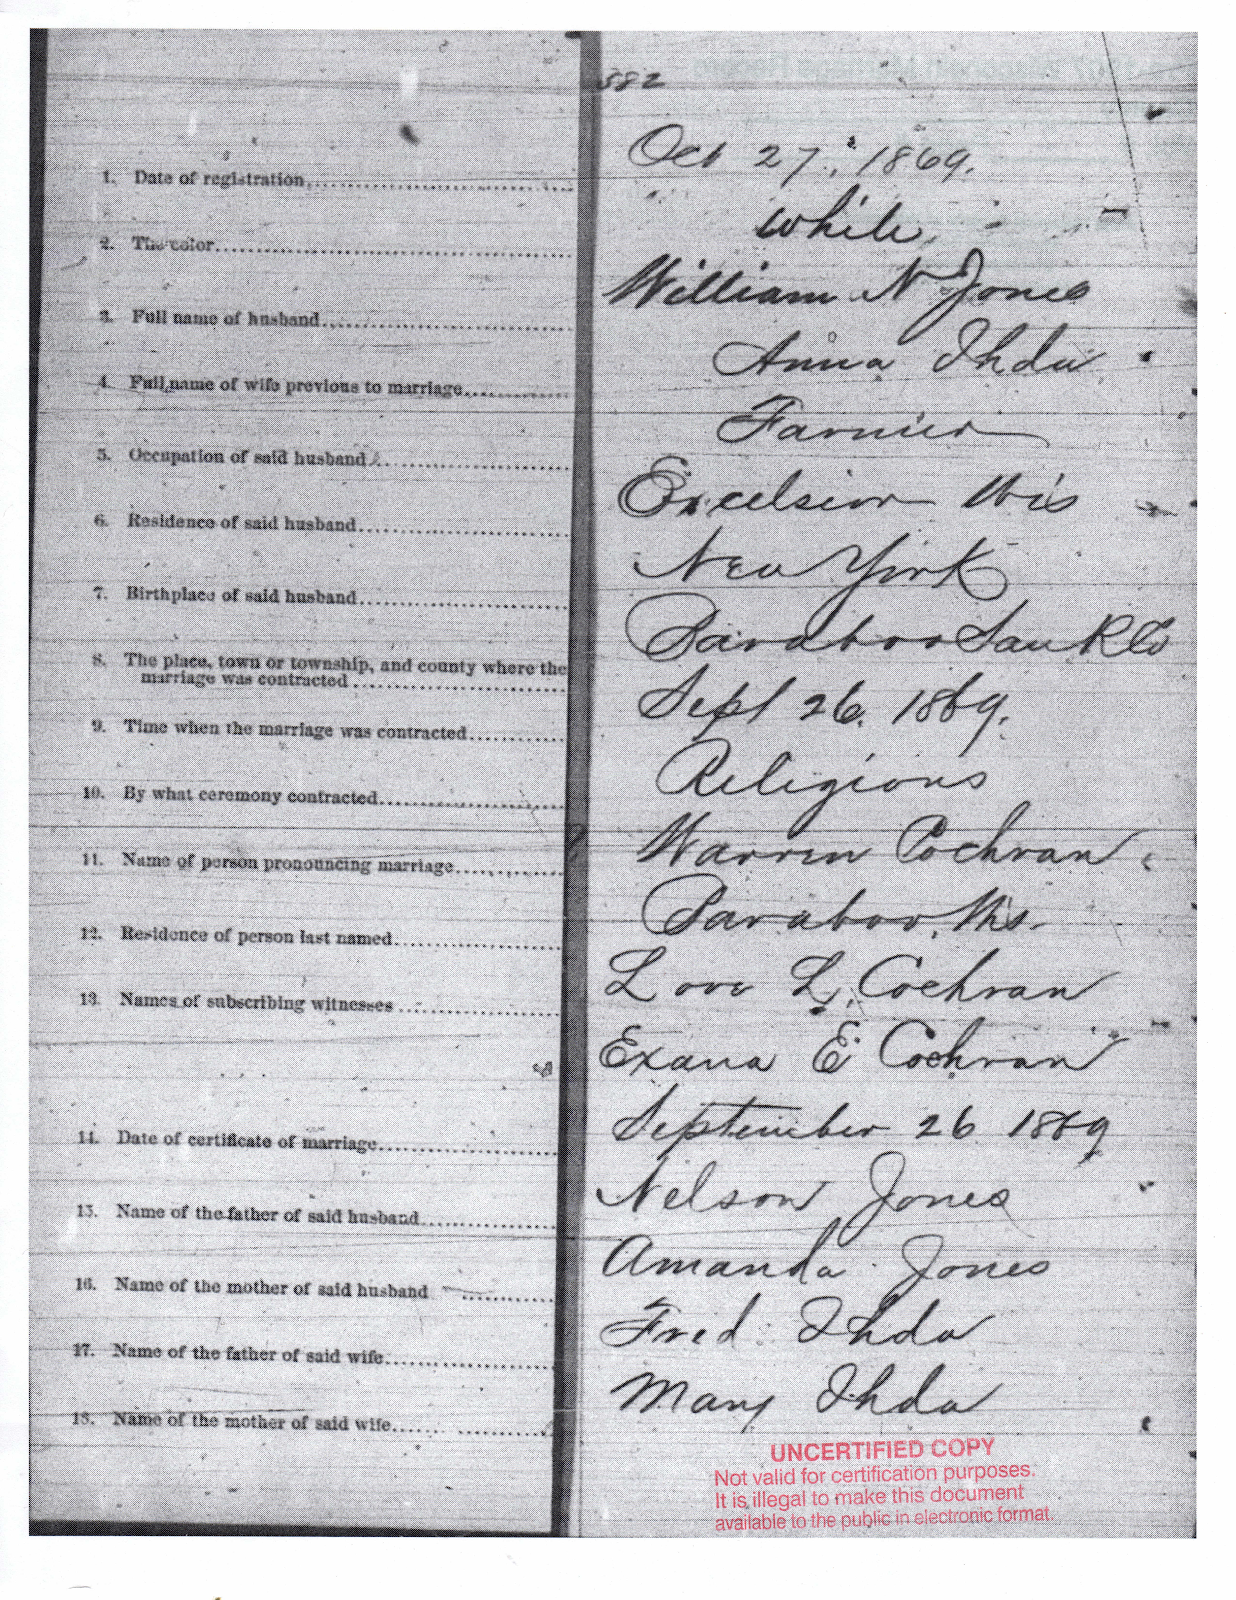 582
1. Date of registration
Oct 27, 1869.
2. The color
White
3. Full name of husband
William N Jones
4. Full name of wife previous to marriage
Anna Ihda
5. Occupation of said husband
Farmer
6. Residence of said husband
Excelsior Wis
7. Birthplace of said husband
New York
8. The place, town or township, and county where the
marriage was contracted
Baraboo Sauk Co
9. Time when the marriage was contracted
Sept 26. 1869.
10. By what ceremony contracted
Religious
11. Name of person pronouncing marriage
Warren Cochran
12. Residence of person last named
Baraboo, Wis.
13. Names of subscribing witnesses
Love L. Cochran
Exana E Cochran
14. Date of certificate of marriage
September 26 1869
15. Name of the father of said husband
Nelson Jones
16. Name of the mother of said husband
Amanda Jones
17. Name of the father of said wife
Fred Ihda
18. Name of the mother of said wife
Mary Ihda
UNCERTIFIED COPY
Not valid for certification purposes.
It is illegal to make this document
available to the public in electronic format.